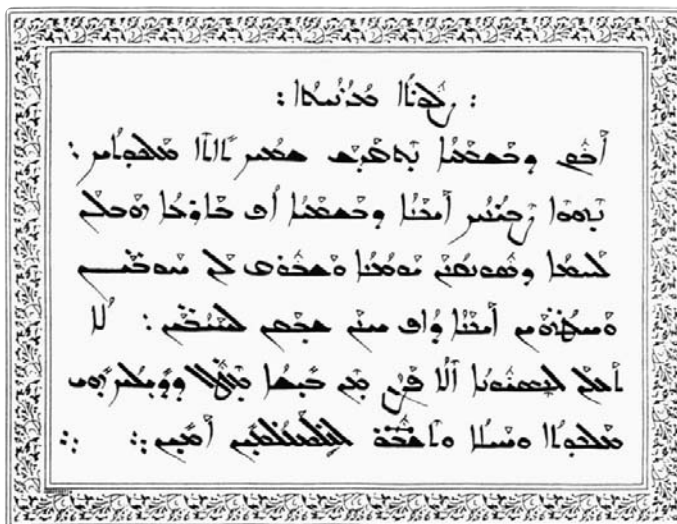 : ܨܠܽܘܬܳܐ ܡܳܪܳܢܳܝܬܳܐ :
ܐܰܒܽܘܢ ܕܒܰܫܡܰܝܳܐ ܢܶܬܩܰܕܰܫ ܫܡܳܟ ܬܺܐܬܶܐ ܡܰܠܟܽܘܬܳܟ :
ܢܶܗܘܶܐ ܨܶܒܝܳܢܳܟ ܐܰܝܟܰܢܳܐ ܕܒܰܫܡܰܝܳܐ ܐܳܦ ܒܰܐܪܥܳܐ ܗܰܒܠܰܢ
ܠܰܚܡܳܐ ܕܣܽܘܢܩܳܢܰܢ ܝܰܘܡܳܢܳܐ ܘܰܫܒܽܘܩ ܠܰܢ ܚܰܘܒܰܝ̈ܢ
ܘܰܚܛܳܗܰܝ̈ܢ ܐܰܝܟܰܢܳܐ ܕܳܐܦ ܚܢܰܢ ܫܒܰܩܢ ܠܚܰܝܳܒܰܝ̈ܢ : ܠܳܐ
ܬܰܥܠܰܢ ܠܢܶܣܝܽܘܢܳܐ ܐܶܠܳܐ ܦܰܨܳܢ ܡܶܢ ܒܺܝܫܳܐ ܡܶܛܽܠ ܕܕܺܝܠܳܟ ܗܺܝ
ܡܰܠܟܽܘܬܳܐ ܘܚܰܝܠܳܐ ܘܬܶܫܒܽܘܚܬܳܐ ܠܥܳܠܰܡ ܥܳܠܡܺܝܢ ܐܰܡܺܝܢ ܀ ܀